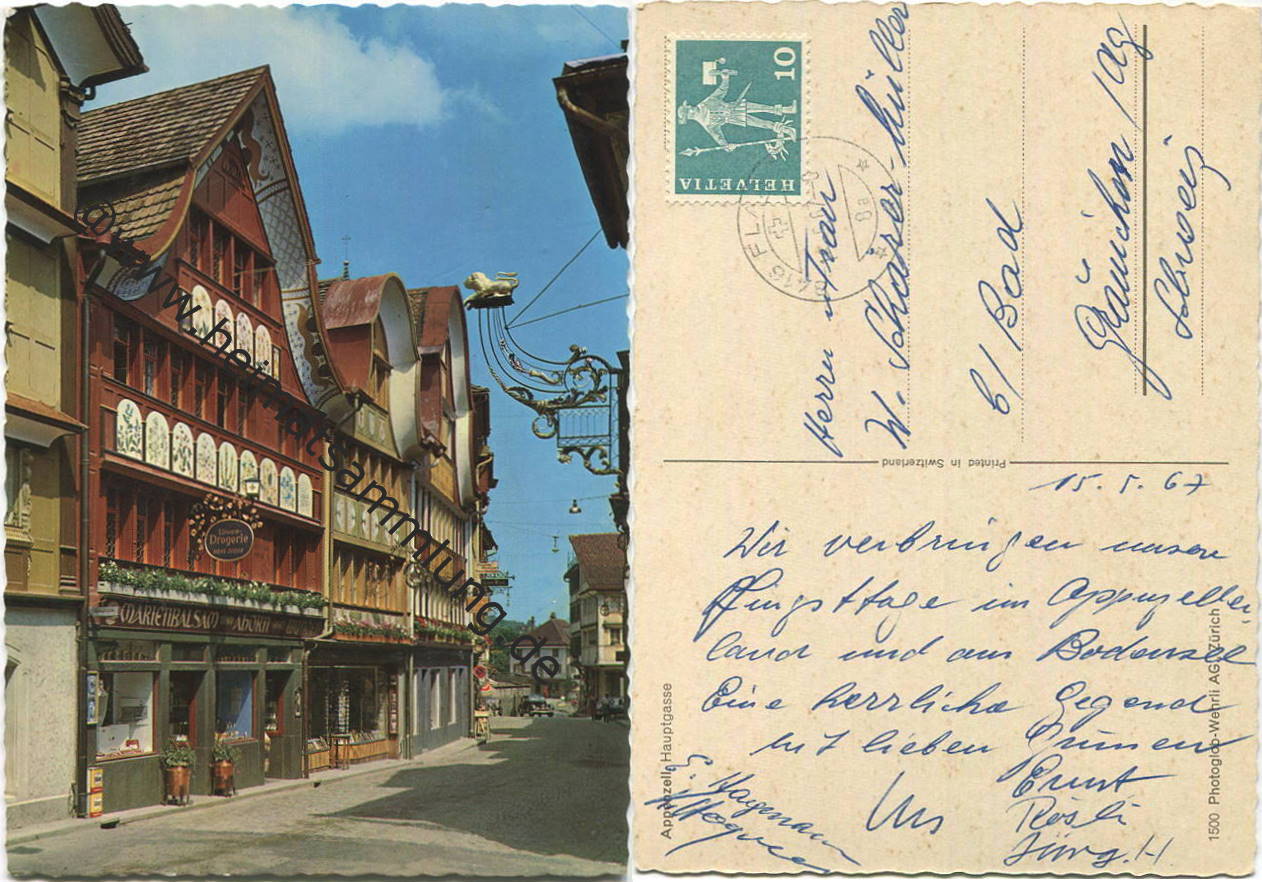 Löwen
Drogerie
MARIENBALSAM ABORN
@www.heimatsammlung.de
HELVETIA
10
9416 FLA
Herrn u Frau
W. Schärer-Müller
b/ Bad
Gränichen / Ag
Schweiz
Printed in Switzerland
15. 5. 67
Wir verbringen unsere
Pfingsttage im Appenzeller
land und am Bodensee
Eine herrliche Gegend
mit lieben Grüssen
Ernst
Rösli
Jürg. H.
Urs
E. Hagmann
Appenzell, Hauptgasse
1500 Photoglob-Wehrli AG, Zürich